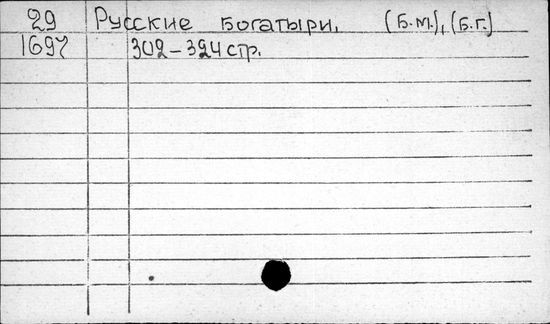 29 Русские богатыри. (Б.м.), (Б.г.)
1697 302-324 стр.